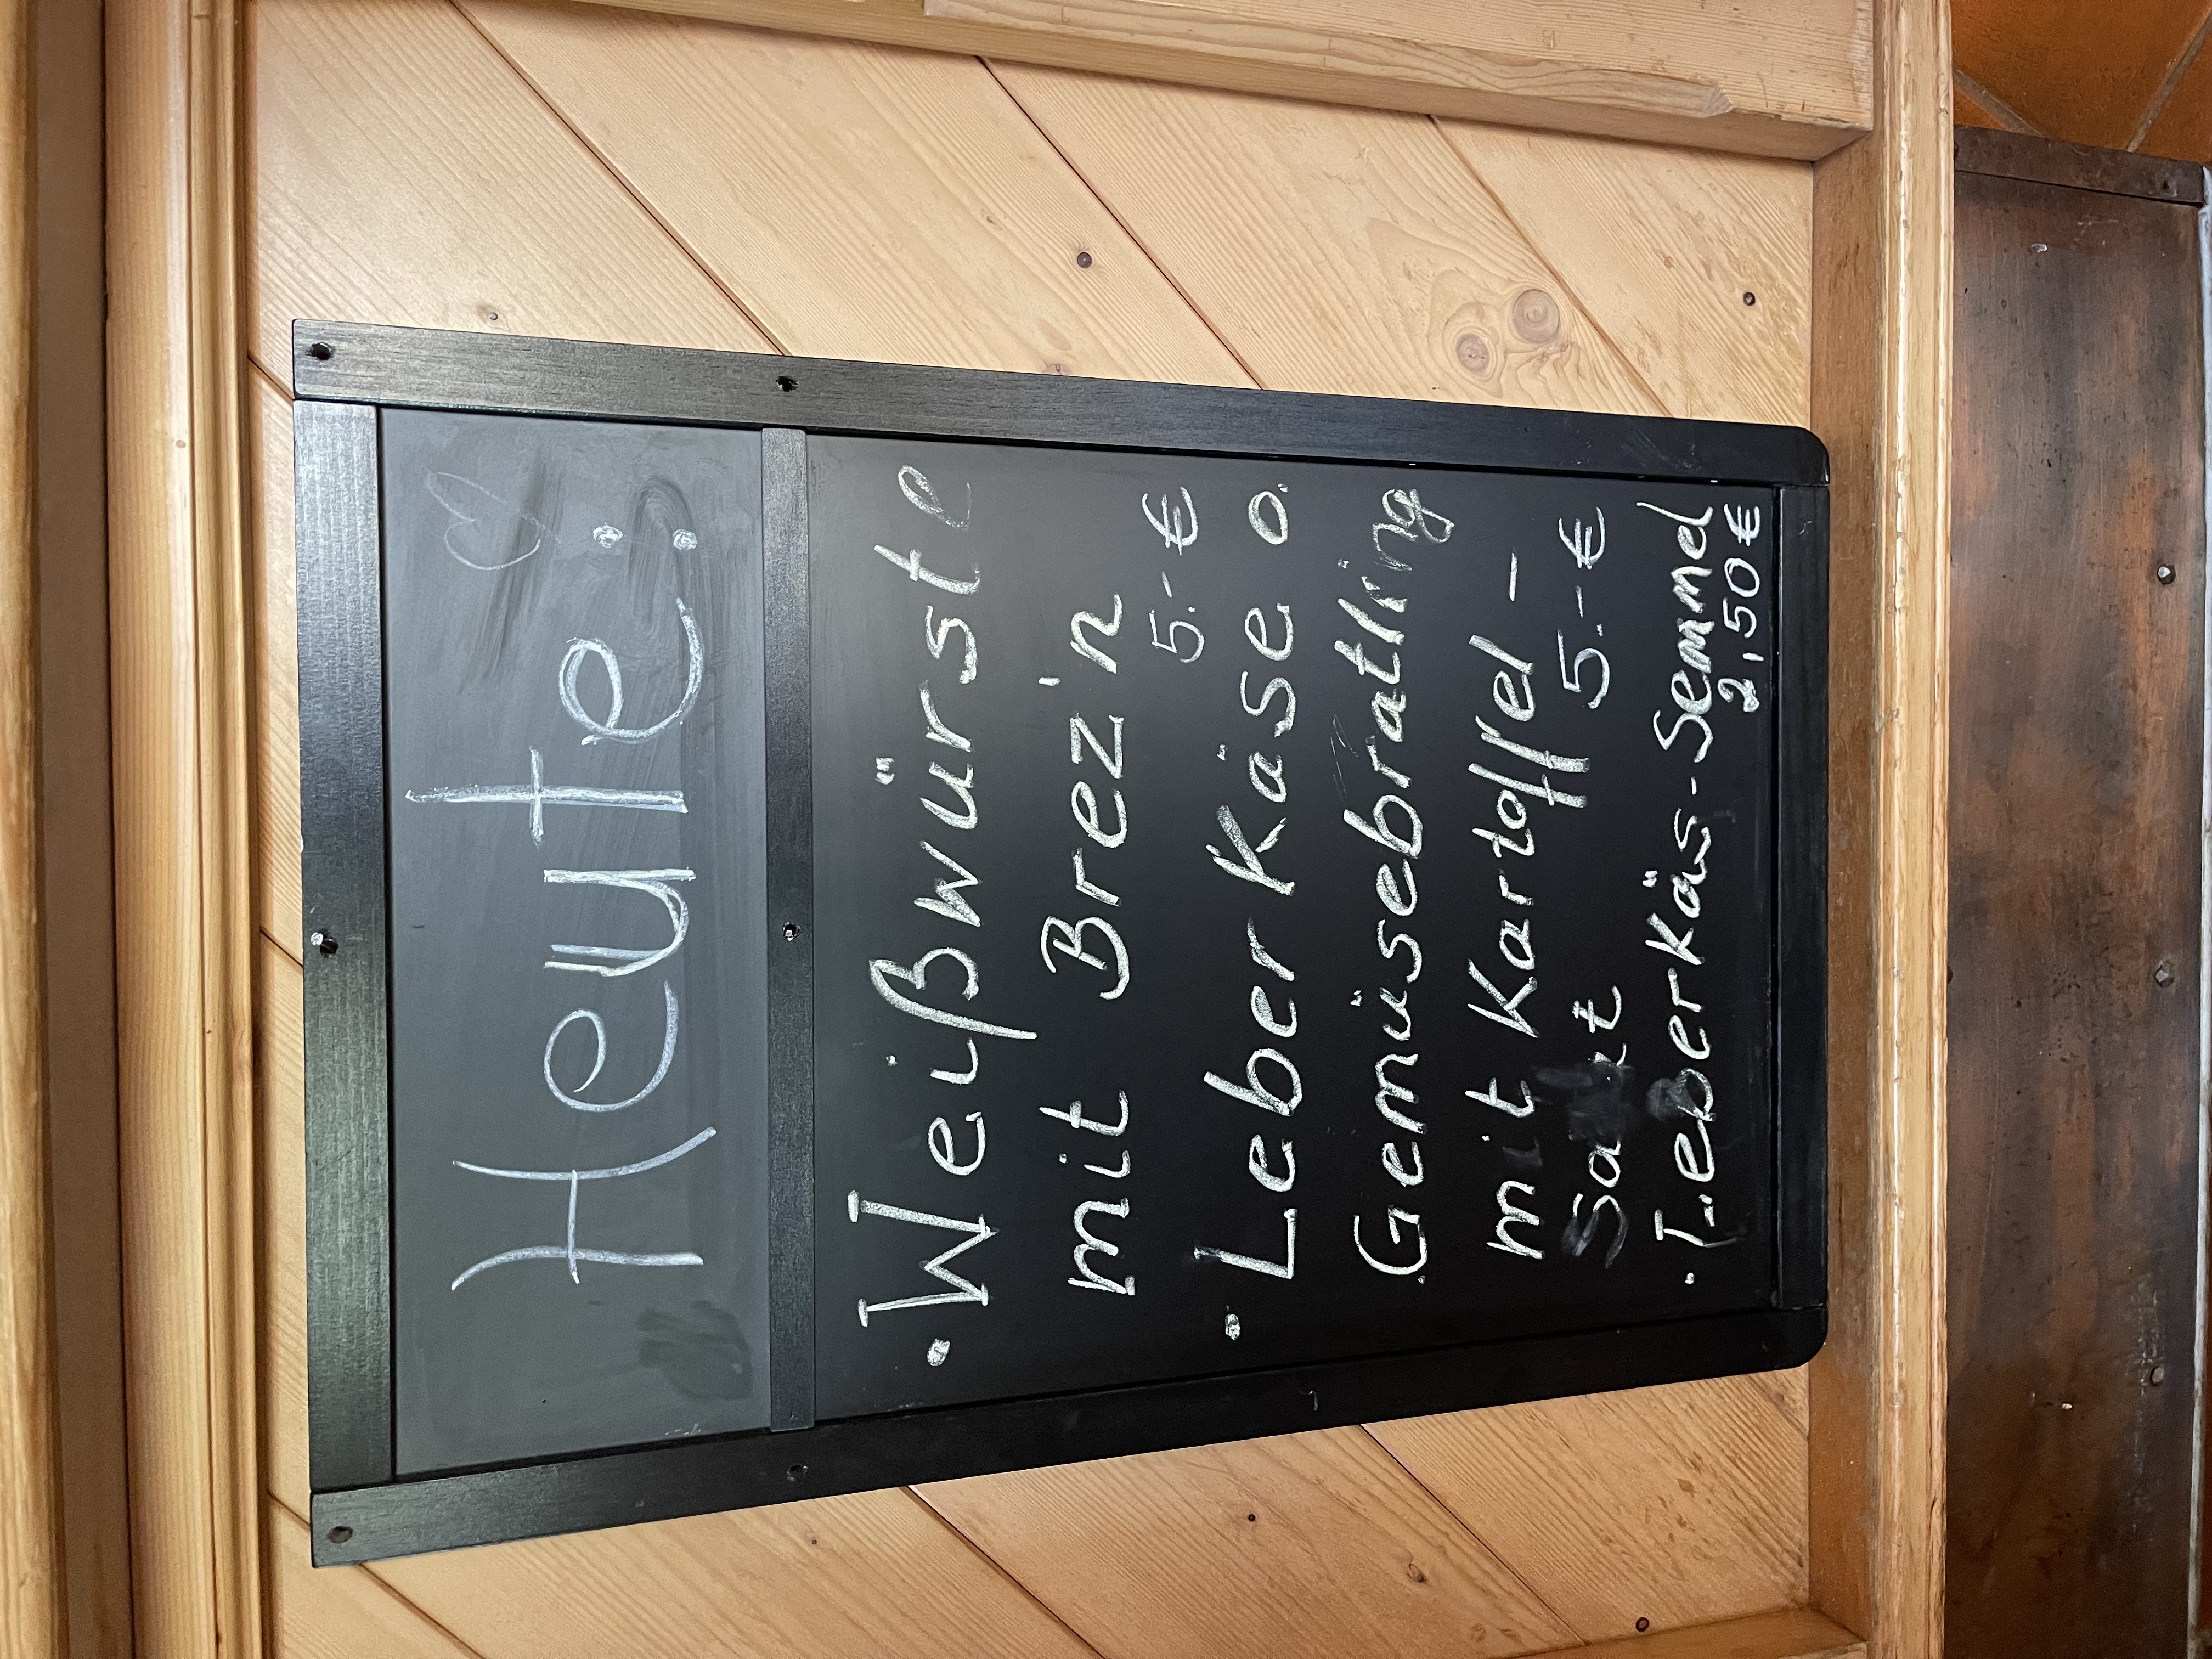 Heute:
• Weißwürste
mit Brez'n
5.-€
• Leber Käse o.
Gemüsebratling
mit Kartoffel-
Salat 5.-€
• Leberkäs-Semmel
2,50€